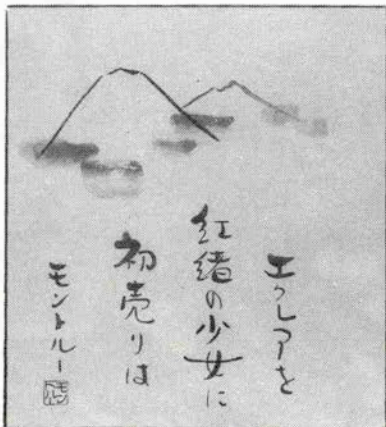 エクレアを
紅緒の少女に
初売りは
モントルー